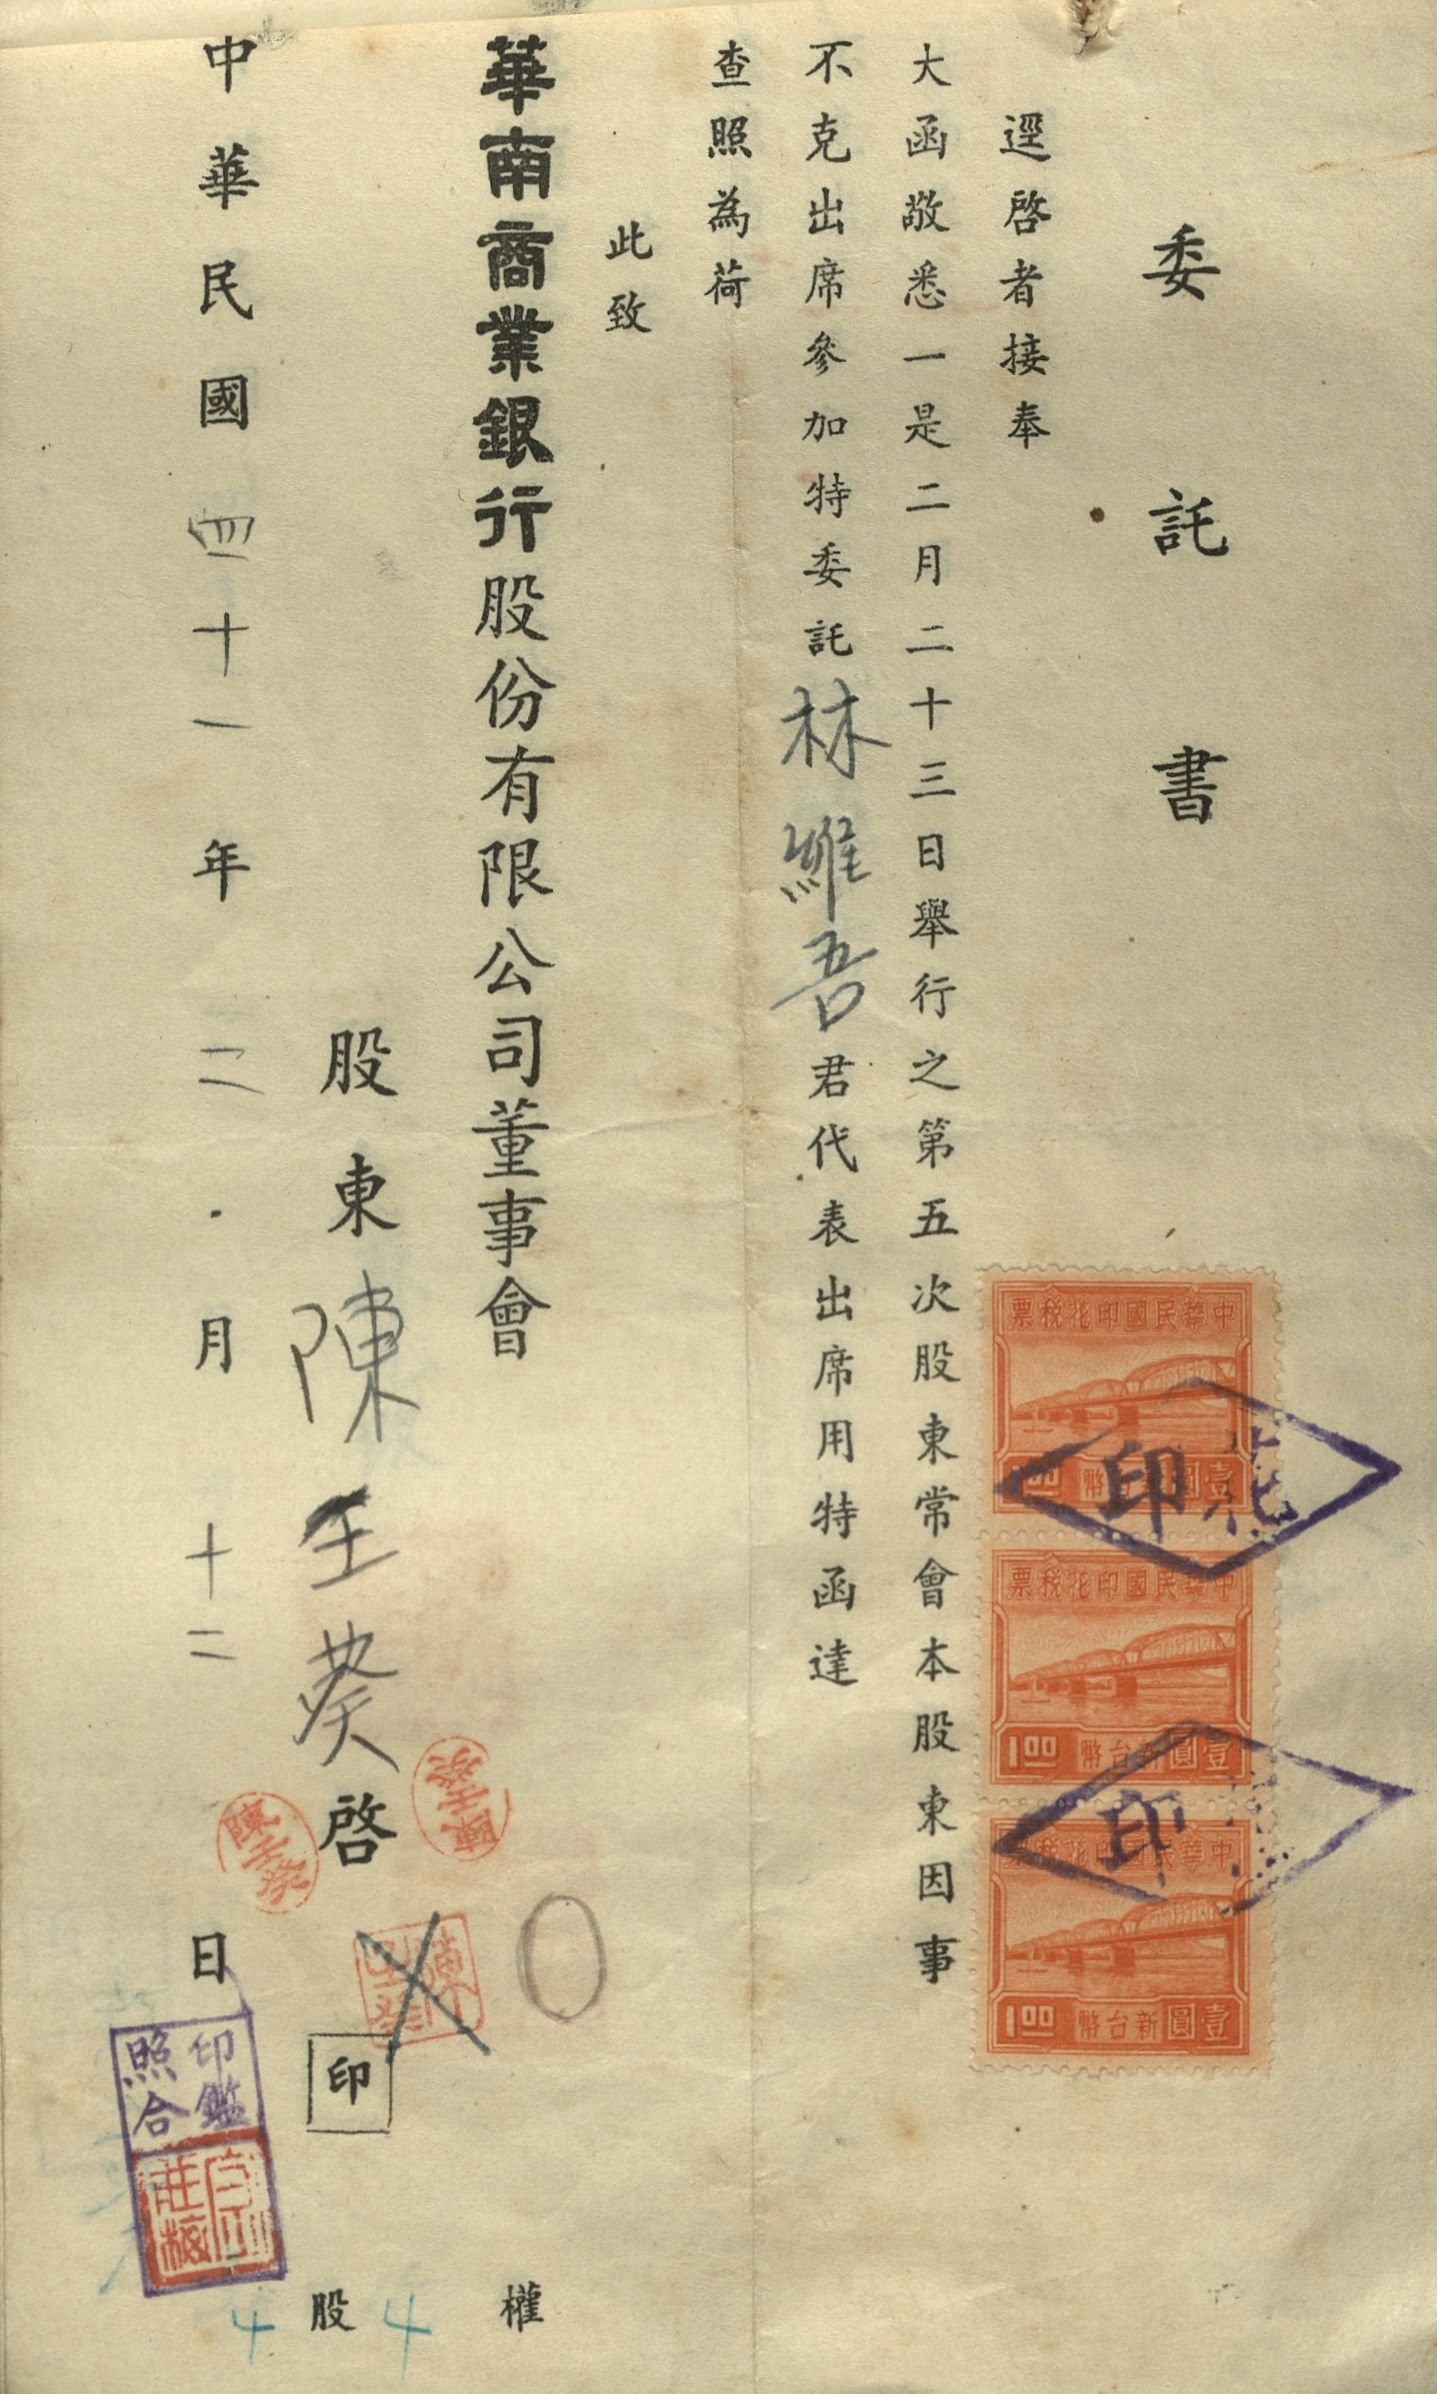 委託書
逕啓者接奉
大函敬悉一是二月二十三日舉行之第五次股東常會本股東因事
不克出席參加特委託林維吾君代表出席用特函達
查照為荷
此致
華南商業銀行股份有限公司董事會
股東陳壬葵啓
印
中華民國四十一年二月十二日
權
股
4
4
中華民國印花稅票
1.00
壹圓新台幣
中華民國印花稅票
1.00
壹圓新台幣
中華民國印花稅票
1.00
壹圓新台幣
印花
印
陳壬葵
陳壬葵
印鑑
照合